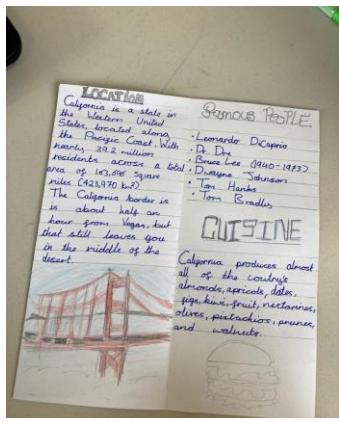 LOCATION
California is a state in
the Western United
States, located along
the Pacific Coast. With
nearly 39.2 million
residents across a total
area of 163,696 square
miles (423,970 km²)
The California border is
is about half an
hour from Vegas, but
that still leaves you
in the middle of the
desert.
Famous PEOPLE
• Leonardo DiCaprio
• Dr Dre
• Bruce Lee (1940-1973)
• Dwayne Johnson
• Tom Hanks
• Tom Bradley
CUISINE
California produces almost
all of the country's
almonds, apricots, dates,
figs, kiwi, fruit, nectarines,
olives, pistachios, prunes,
and walnuts.